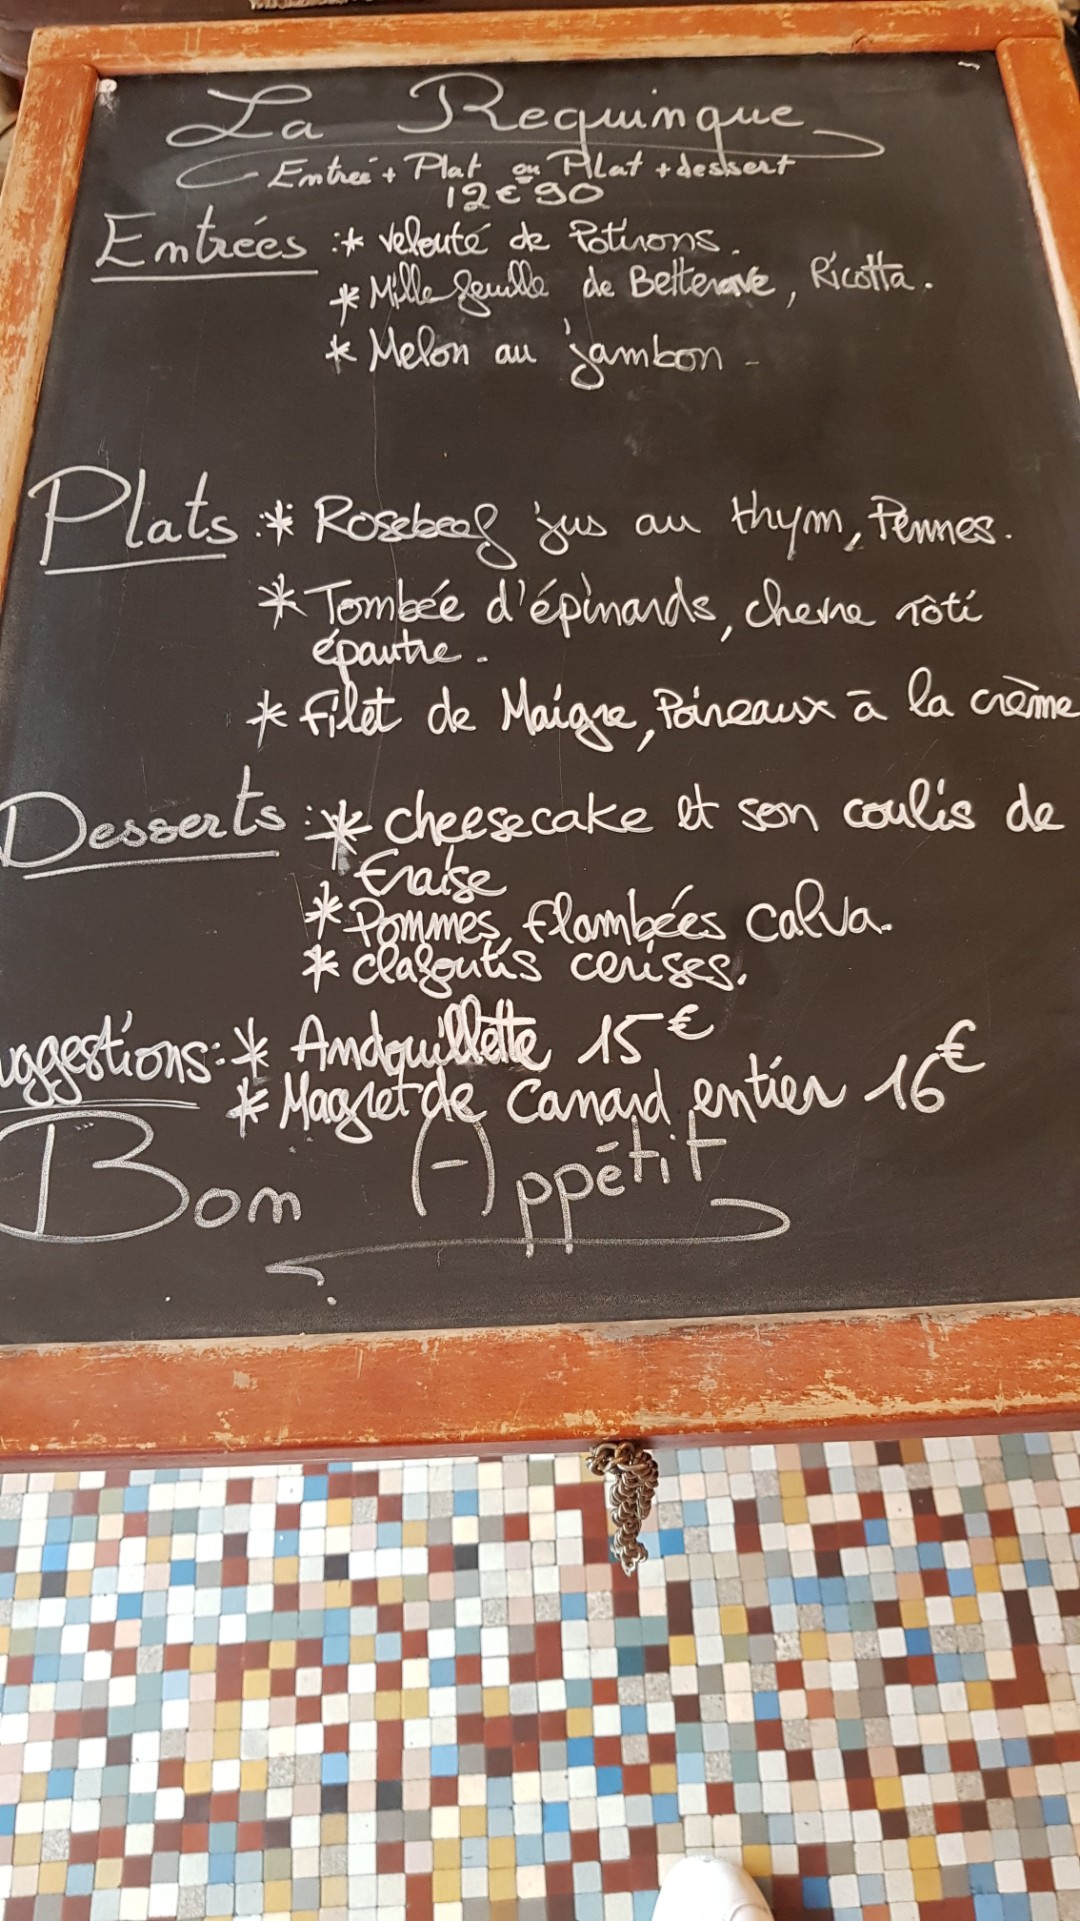 La Requinque
Entreé + Plat ou Plat + dessert
12€90
Entrées : * Velouté de Potirons.
* Mille feuille de Betterave, Ricotta.
* Melon au jambon -
Plats : * Rosebeef jus au thym, Pennes.
* Tombée d'épinards, chevre rôti
épautre.
* Filet de Maigre, Poireaux à la crème
Desserts : * cheesecake et son coulis de
fraise
* Pommes flambées calva.
* clafoutis cerises.
uggestions : * Andouillette 15€
* Magret de Canard entier 16€
Bon Appétit